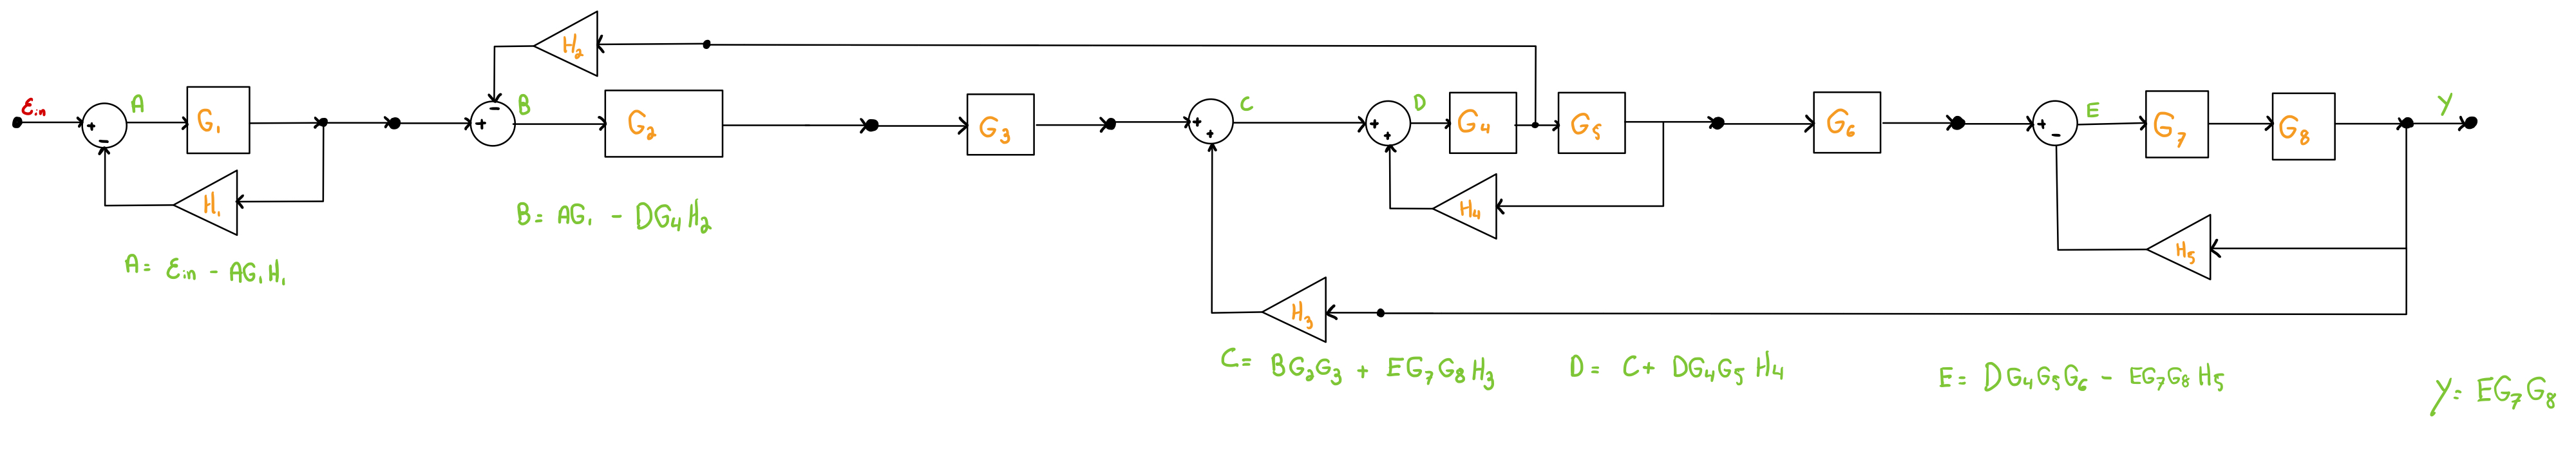 H₂
Ɛin
A
G₁
B
G₂
G₃
C
D
G₄
G₅
G₆
E
G₇
G₈
Y
+
−
−
+
+
+
+
+
+
−
H₁
H₄
H₅
H₃
B= AG₁ - DG₄H₂
A= Ɛin - AG₁H₁
C= BG₂G₃ + EG₇G₈H₃
D= C+ DG₄G₅H₄
E= DG₄G₅G₆ - EG₇G₈H₅
Y= EG₇G₈